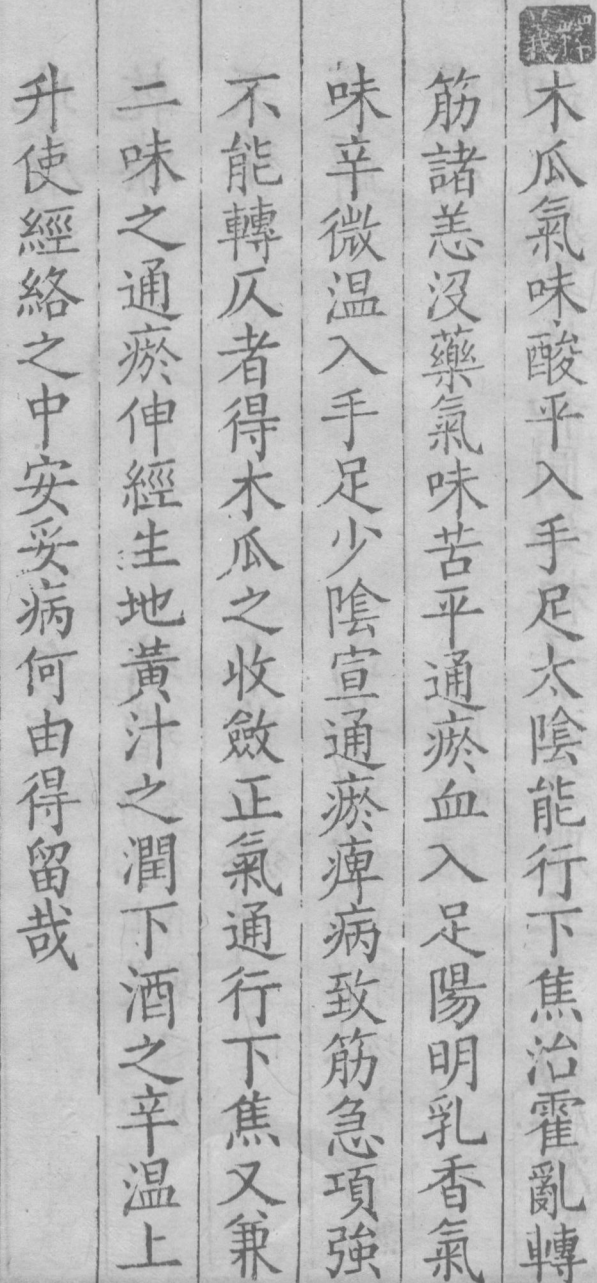 釋義
木瓜氣味酸平入手足太陰能行下焦治霍亂轉
筋諸恙沒藥氣味苦平通瘀血入足陽明乳香氣
味辛微温入手足少陰宣通瘀痺病致筋急項強
不能轉仄者得木瓜之收斂正氣通行下焦又兼
二味之通瘀伸經生地黃汁之潤下酒之辛温上
升使經絡之中安妥病何由得留哉